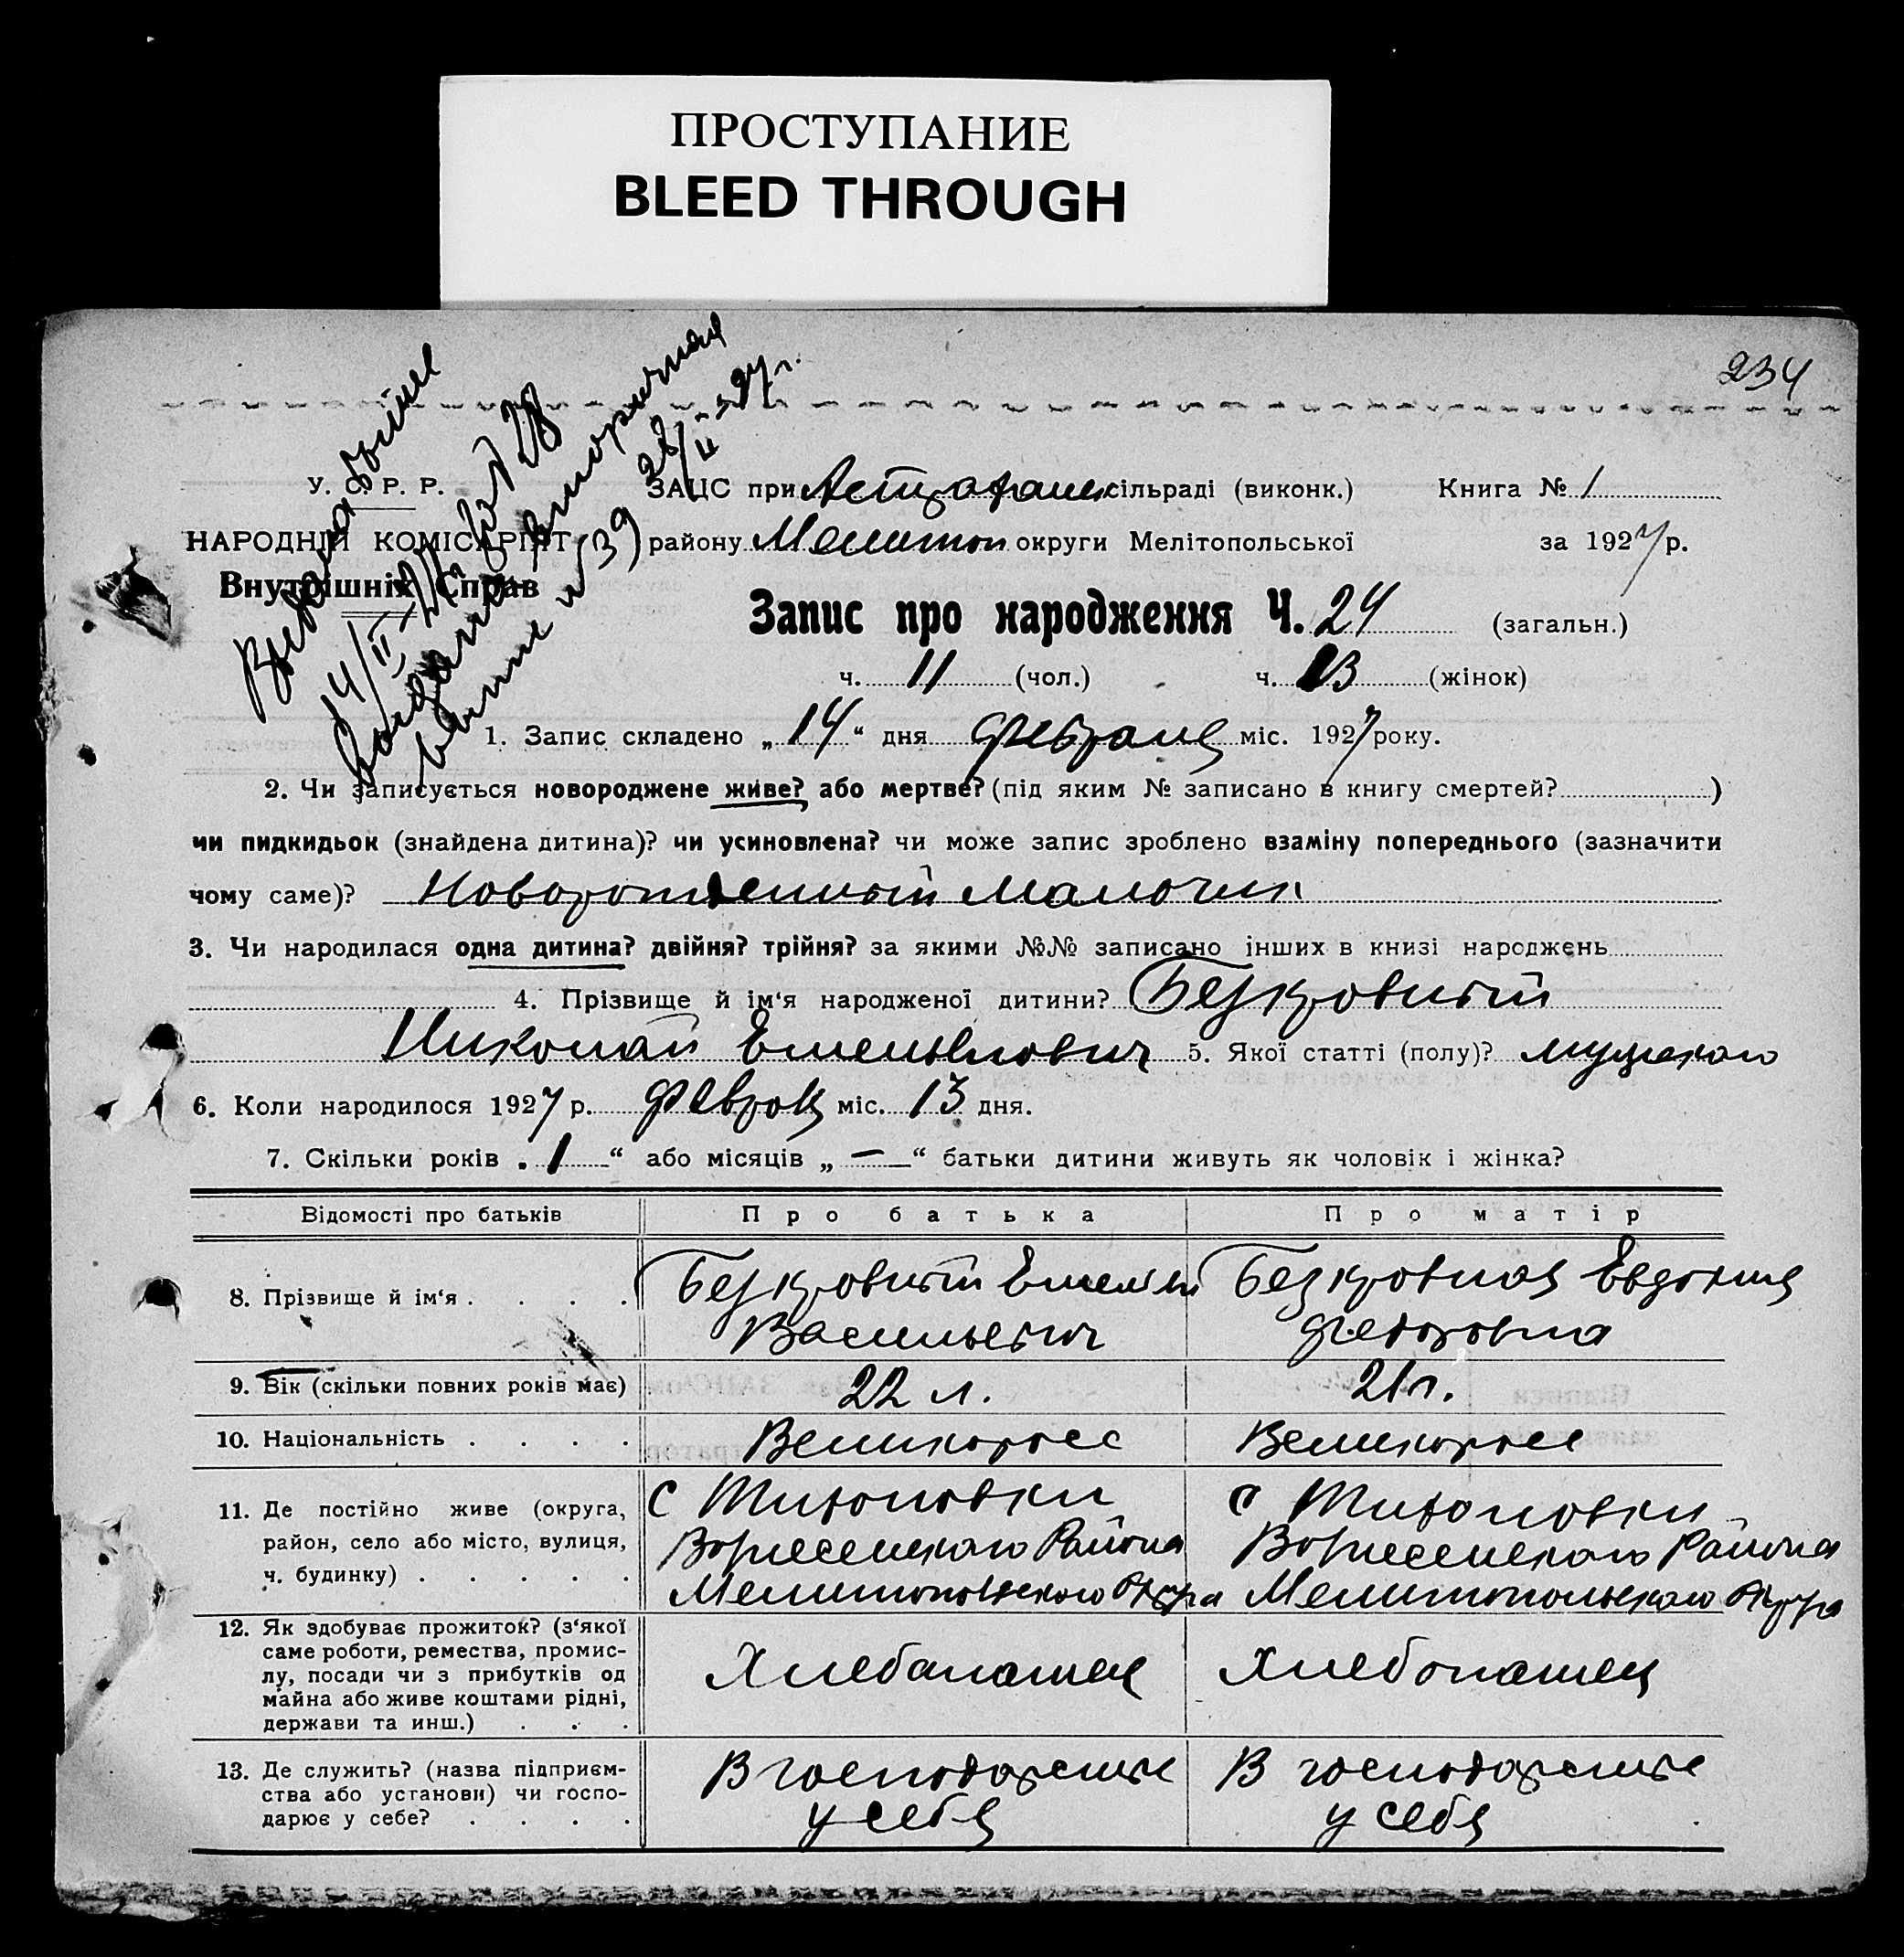 ПРОСТУПАНИЕ
BLEED THROUGH
234
Выдана
14/II-27
Выдана вторичная
28/II-27 г.
У. С. Р. Р.
НАРОДНІЙ КОМІСАРІЯТ
Внутрішніх Справ
ЗАЦС при Астраханс сільраді (виконк.) Книга № 1
району Мелитоп округи Мелітопольської за 1927 р.
Запис про народження Ч. 24 (загальн.)
ч. 11 (чол.) ч. 13 (жінок)
1. Запис складено „14“ дня Февраля міс. 1927 року.
2. Чи записується новороджене живе? або мертве? (під яким № записано в книгу смертей? )
чи пидкидьок (знайдена дитина)? чи усиновлена? чи може запис зроблено взаміну попереднього (зазначити
чому саме)? Новорожденный Малочик
3. Чи народилася одна дитина? двійня? трійня? за якими №№ записано інших в книзі народжень
4. Прізвище й ім‘я народженої дитини? Безкровный
Николай Емельянович 5. Якої статті (полу)? мужского
6. Коли народилося 1927 р. Февраля міс. 13 дня.
7. Скільки років „1“ або місяців „—“ батьки дитини живуть як чоловік і жінка?
Відомості про батьків Про батька Про матір
8. Прізвище й ім‘я . . . . Безкровный Емельян Безкровная Евдокия
Васильевич Федоровна
9. Вік (скільки повних років має) 22 л. 21 г.
10. Національність . . . . Великоросс Великоросс
11. Де постійно живе (округа, с Тихоновки с Тихоновки
район, село або місто, вулиця, Вознесенского Района Вознесенского Района
ч. будинку) . . . . . Мелитопольского Округа Мелитопольского Округа
12. Як здобуває прожиток? (з‘якої
саме роботи, ремества, промис-
лу, посади чи з прибутків од Хлебопашец Хлебопашец
майна або живе коштами рідні,
держави та инш.) . . .
13. Де служить? (назва підприєм- В господарстве В господарстве
ства або установи) чи госпо-
дарює у себе? . . . . у себя у себя